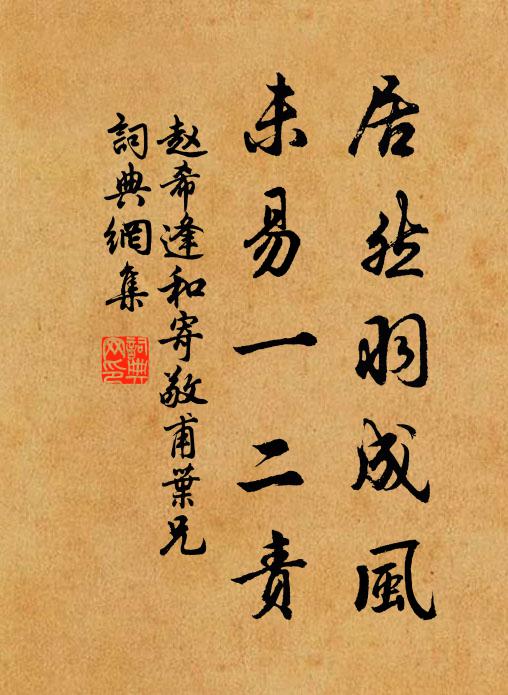 居然羽成風
未易一二責
赵希逢和寄敬甫葉兄
詞典網集
詞典网印